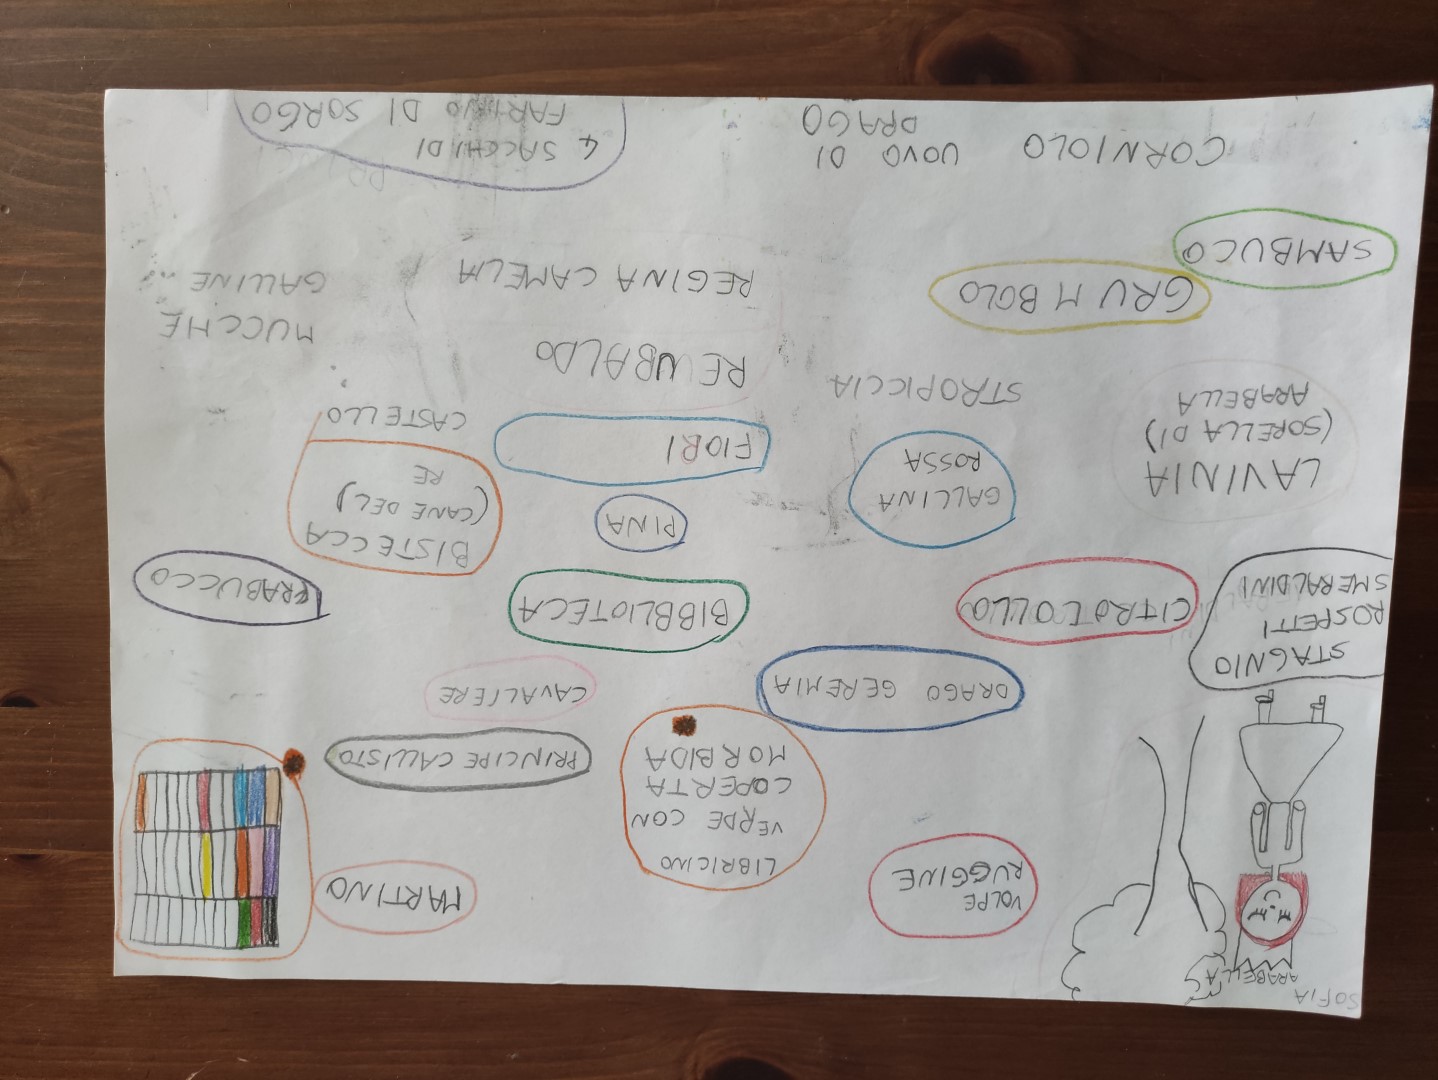 SOFIA
ARABELLA
VOLPE
RUGGINE
LIBRICINO
VERDE CON
COPERTA
MORBIDA
MARTINO
PRINCIPE CALLISTO
CAVALIERE
DRAGO GEREMIA
STAGNIO
ROSPETTI
SMERALDINI
CITROLOLLO
BIBBLIOTECA
TRABUCCO
PINA
BISTECCA
(CANE DEL)
RE
CASTELLO
GALLINA
ROSSA
FIORI
LAVINIA
(SORELLA DI)
ARABELLA
STROPICCIA
RE UBALDO
MUCCHE
GALLINE ...
REGINA CAMELIA
GRUMBOLO
SAMBUCO
CORNIOLO
UOVO DI
DRAGO
4 SACCHI DI
FARINO DI SORGO